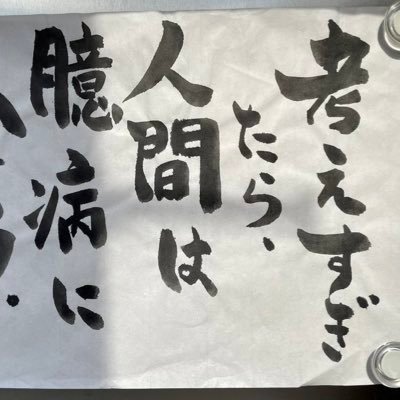 考えすぎ
たら、
人間は
臆病に